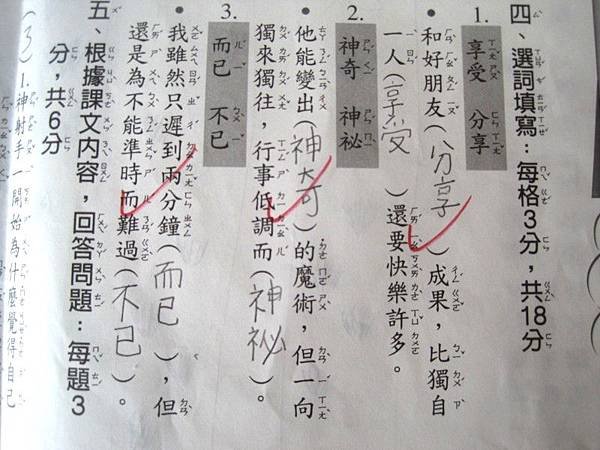 四、選詞填寫：每格3分，共18分
1. 享受 分享
和好朋友（分享）成果，比獨自
一人（享受）還要快樂許多。
2. 神奇 神祕
他能變出（神奇）的魔術，但一向
獨來獨往，行事低調而（神祕）。
3. 而已 不已
我雖然只遲到兩分鐘（而已），但
還是為不能準時而難過（不已）。
五、根據課文內容，回答問題：每題3
分，共6分
(3) 1.神射手一開始為什麼覺得自己